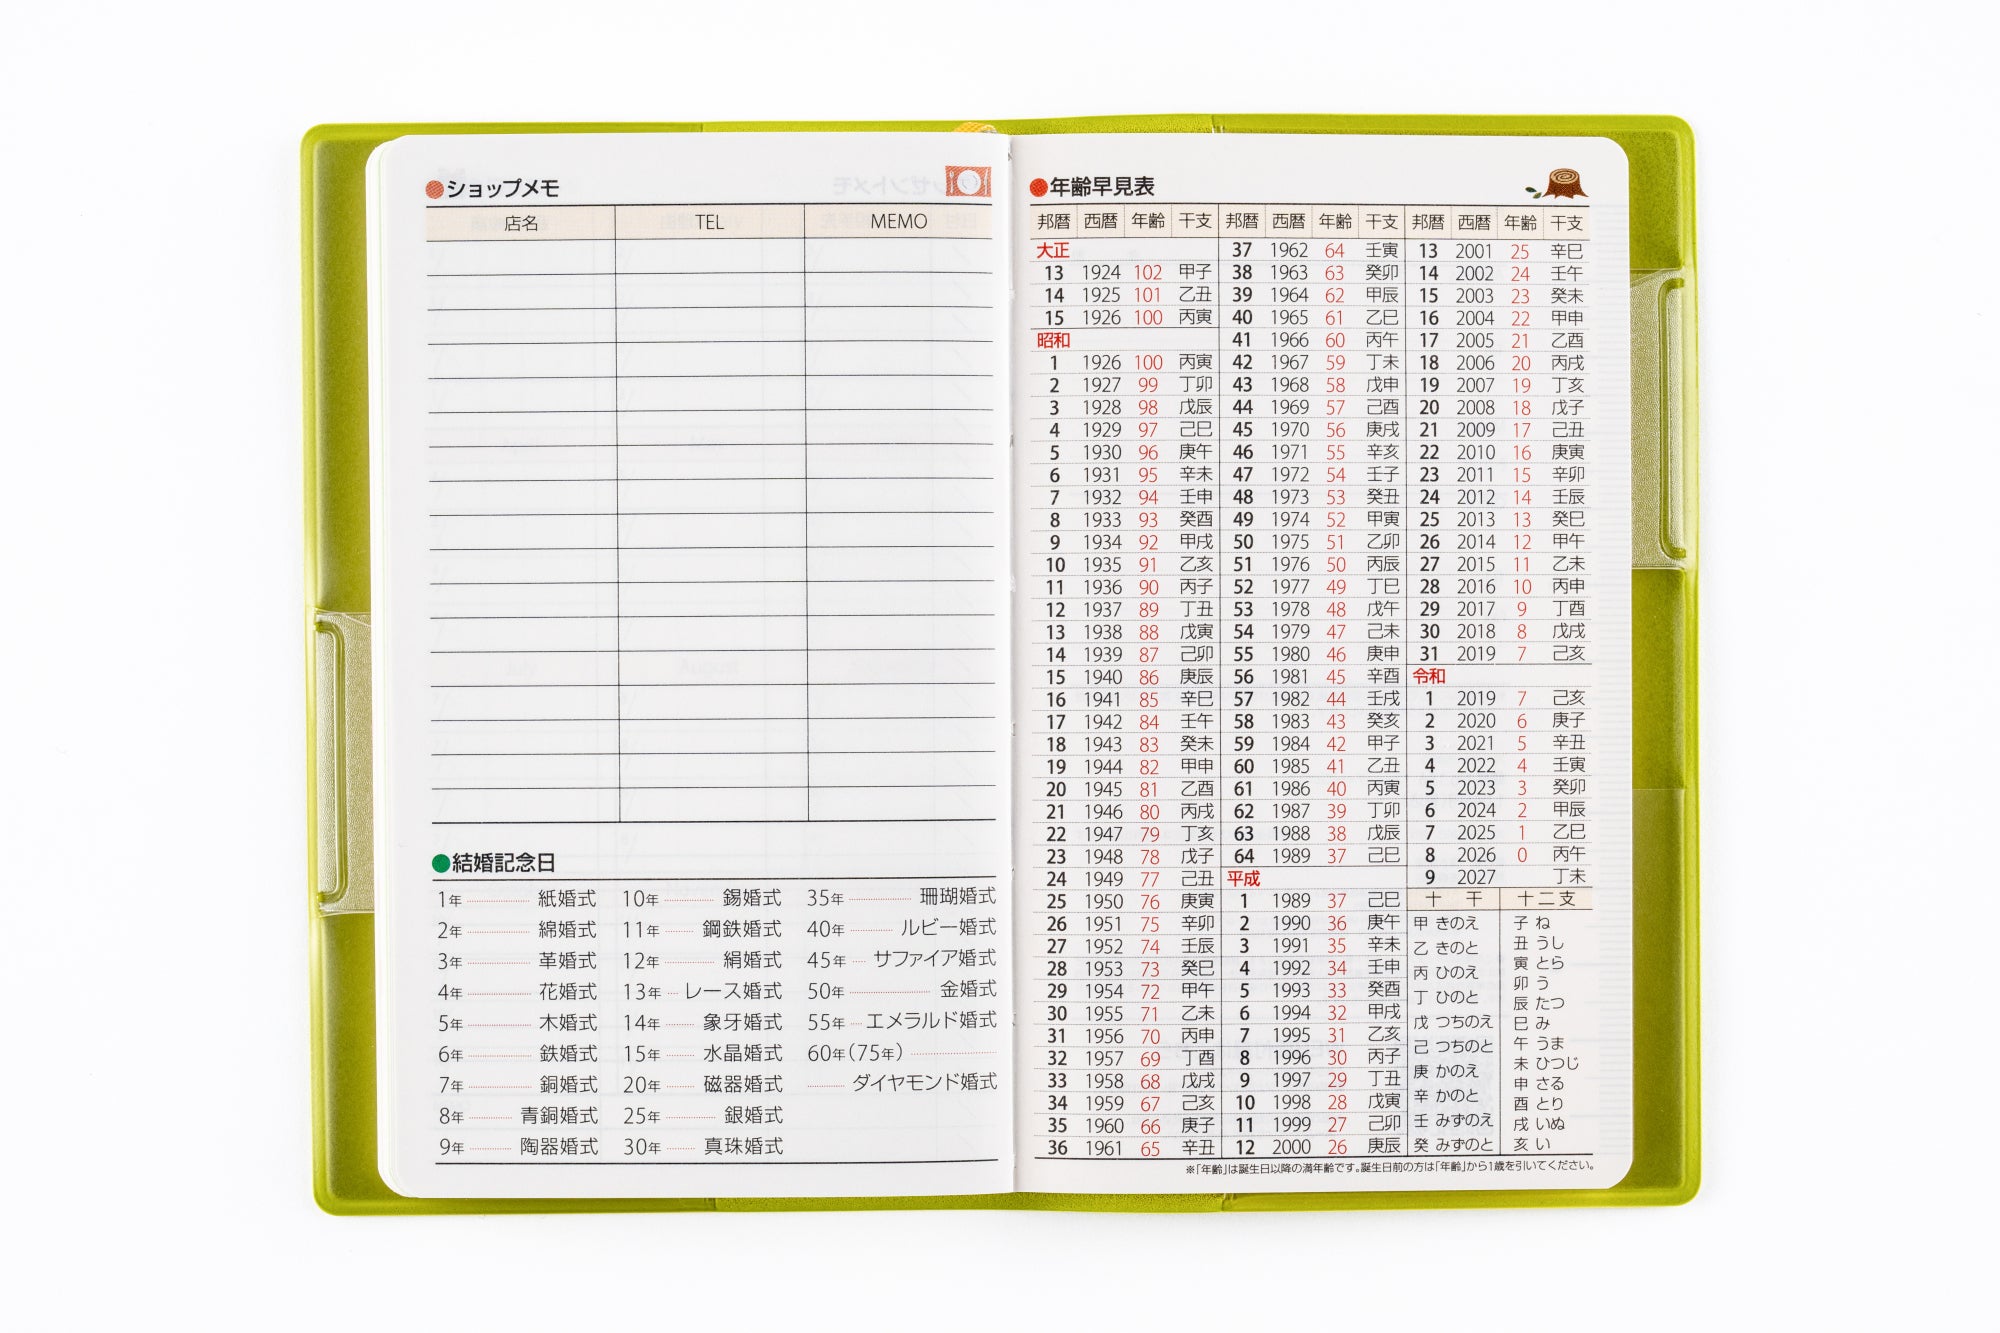 ショップメモ
店名 TEL MEMO
結婚記念日
1年 紙婚式 10年 錫婚式 35年 珊瑚婚式
2年 綿婚式 11年 鋼鉄婚式 40年 ルビー婚式
3年 革婚式 12年 絹婚式 45年 サファイア婚式
4年 花婚式 13年 レース婚式 50年 金婚式
5年 木婚式 14年 象牙婚式 55年 エメラルド婚式
6年 鉄婚式 15年 水晶婚式 60年(75年)
7年 銅婚式 20年 磁器婚式 ダイヤモンド婚式
8年 青銅婚式 25年 銀婚式
9年 陶器婚式 30年 真珠婚式
年齢早見表
邦暦 西暦 年齢 干支 邦暦 西暦 年齢 干支 邦暦 西暦 年齢 干支
大正 37 1962 64 壬寅 13 2001 25 辛巳
13 1924 102 甲子 38 1963 63 癸卯 14 2002 24 壬午
14 1925 101 乙丑 39 1964 62 甲辰 15 2003 23 癸未
15 1926 100 丙寅 40 1965 61 乙巳 16 2004 22 甲申
昭和 41 1966 60 丙午 17 2005 21 乙酉
1 1926 100 丙寅 42 1967 59 丁未 18 2006 20 丙戌
2 1927 99 丁卯 43 1968 58 戊申 19 2007 19 丁亥
3 1928 98 戊辰 44 1969 57 己酉 20 2008 18 戊子
4 1929 97 己巳 45 1970 56 庚戌 21 2009 17 己丑
5 1930 96 庚午 46 1971 55 辛亥 22 2010 16 庚寅
6 1931 95 辛未 47 1972 54 壬子 23 2011 15 辛卯
7 1932 94 壬申 48 1973 53 癸丑 24 2012 14 壬辰
8 1933 93 癸酉 49 1974 52 甲寅 25 2013 13 癸巳
9 1934 92 甲戌 50 1975 51 乙卯 26 2014 12 甲午
10 1935 91 乙亥 51 1976 50 丙辰 27 2015 11 乙未
11 1936 90 丙子 52 1977 49 丁巳 28 2016 10 丙申
12 1937 89 丁丑 53 1978 48 戊午 29 2017 9 丁酉
13 1938 88 戊寅 54 1979 47 己未 30 2018 8 戊戌
14 1939 87 己卯 55 1980 46 庚申 31 2019 7 己亥
15 1940 86 庚辰 56 1981 45 辛酉 令和
16 1941 85 辛巳 57 1982 44 壬戌 1 2019 7 己亥
17 1942 84 壬午 58 1983 43 癸亥 2 2020 6 庚子
18 1943 83 癸未 59 1984 42 甲子 3 2021 5 辛丑
19 1944 82 甲申 60 1985 41 乙丑 4 2022 4 壬寅
20 1945 81 乙酉 61 1986 40 丙寅 5 2023 3 癸卯
21 1946 80 丙戌 62 1987 39 丁卯 6 2024 2 甲辰
22 1947 79 丁亥 63 1988 38 戊辰 7 2025 1 乙巳
23 1948 78 戊子 64 1989 37 己巳 8 2026 0 丙午
24 1949 77 己丑 平成 9 2027 丁未
25 1950 76 庚寅 1 1989 37 己巳 十干 十二支
26 1951 75 辛卯 2 1990 36 庚午
27 1952 74 壬辰 3 1991 35 辛未
28 1953 73 癸巳 4 1992 34 壬申
29 1954 72 甲午 5 1993 33 癸酉
30 1955 71 乙未 6 1994 32 甲戌
31 1956 70 丙申 7 1995 31 乙亥
32 1957 69 丁酉 8 1996 30 丙子
33 1958 68 戊戌 9 1997 29 丁丑
34 1959 67 己亥 10 1998 28 戊寅
35 1960 66 庚子 11 1999 27 己卯
36 1961 65 辛丑 12 2000 26 庚辰
甲 きのえ
乙 きのと
丙 ひのえ
丁 ひのと
戊 つちのえ
己 つちのと
庚 かのえ
辛 かのと
壬 みずのえ
癸 みずのと
子 ね
丑 うし
寅 とら
卯 う
辰 たつ
巳 み
午 うま
未 ひつじ
申 さる
酉 とり
戌 いぬ
亥 い
※「年齢」は誕生日以降の満年齢です。誕生日前の方は「年齢」から1歳を引いてください。